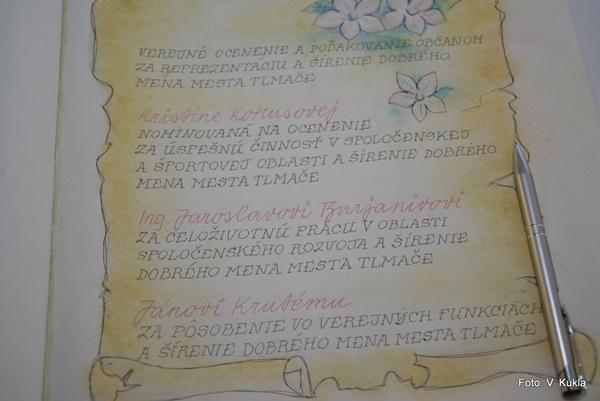 VEREJNÉ OCENENIE A POĎAKOVANIE OBČANOM
ZA REPREZENTÁCIU A ŠÍRENIE DOBRÉHO
MENA MESTA TLMAČE
Kristíne Kohusovej
NOMINOVANÁ NA OCENENIE
ZA ÚSPEŠNÚ ČINNOSŤ V SPOLOČENSKEJ
A ŠPORTOVEJ OBLASTI A ŠÍRENIE DOBRÉHO
MENA MESTA TLMAČE
Ing. Jaroslavovi Burjanivovi
ZA CELOŽIVOTNÚ PRÁCU V OBLASTI
SPOLOČENSKÉHO ROZVOJA A ŠÍRENIE
DOBRÉHO MENA MESTA TLMAČE
Jánovi Krutému
ZA PÔSOBENIE VO VEREJNÝCH FUNKCIÁCH
A ŠÍRENIE DOBRÉHO MENA MESTA TLMAČE
Foto: V. Kukla